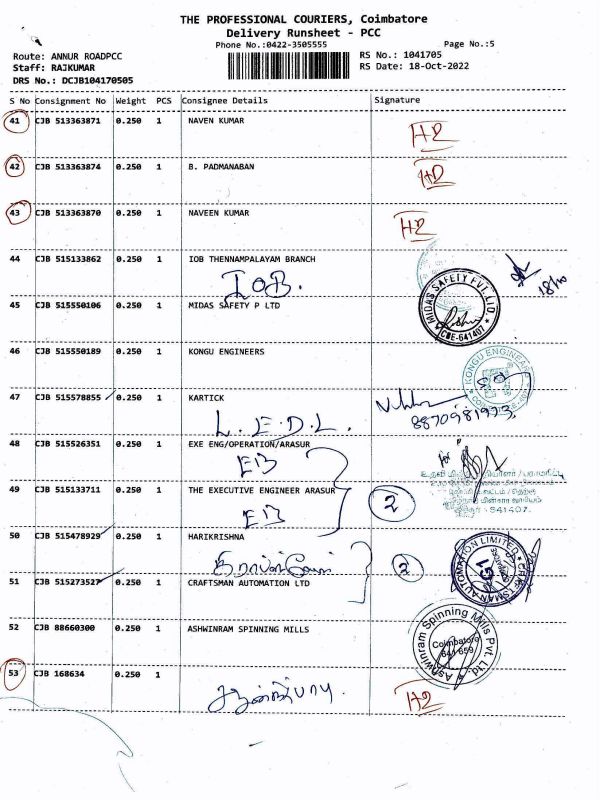 THE PROFESSIONAL COURIERS, Coimbatore
Delivery Runsheet - PCC
Phone No.:0422-3505555
Page No.:5
Route: ANNUR ROADPCC
RS No.: 1041705
Staff: RAJKUMAR
RS Date: 18-Oct-2022
DRS No.: DCJB104170505
S No Consignment No Weight PCS Consignee Details Signature
41 CJB 513363871 0.250 1 NAVEN KUMAR
42 CJB 513363874 0.250 1 B. PADMANABAN
43 CJB 513363870 0.250 1 NAVEEN KUMAR
44 CJB 515133862 0.250 1 IOB THENNAMPALAYAM BRANCH
IOB.
18/10
45 CJB 515550106 0.250 1 MIDAS SAFETY P LTD
MIDAS SAFETY PVT. LTD.
CBE-641407
46 CJB 515550189 0.250 1 KONGU ENGINEERS
KONGU ENGINEERS
47 CJB 515578855 0.250 1 KARTICK
8870981973
L.E.D.L.
48 CJB 515526351 0.250 1 EXE ENG/OPERATION/ARASUR
EB
49 CJB 515133711 0.250 1 THE EXECUTIVE ENGINEER ARASUR
EB
2
641407
50 CJB 515478929 0.250 1 HARIKRISHNA
2
51 CJB 515273527 0.250 1 CRAFTSMAN AUTOMATION LTD
CRAFTSMAN AUTOMATION LIMITED
52 CJB 88660300 0.250 1 ASHWINRAM SPINNING MILLS
Ashwinram Spinning Mills Pvt. Ltd.
Coimbatore
641 659
53 CJB 168634 0.250 1